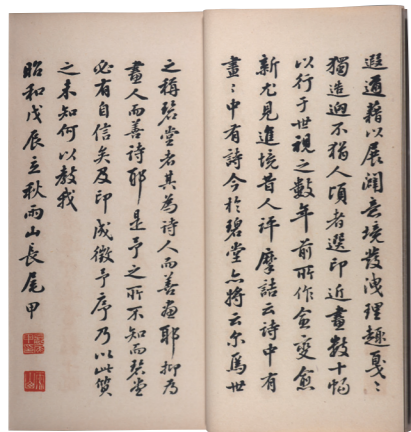 遐邇藉以展闊意境發洩理趣戛〻
獨造迥不猶人頃者選印近畫數十幅
以行于世視之數年前所作愈變愈
新尤見進境昔人評摩詰云詩中有
畫〻中有詩今於碧堂亦將云尔焉世
之稱碧堂者其為詩人而善畫耶抑為
畫人而善詩耶是予之所不知而碧堂
必有自信矣及印成徵予序乃以此質
之未知何以教我
昭和戊辰立秋雨山長尾甲